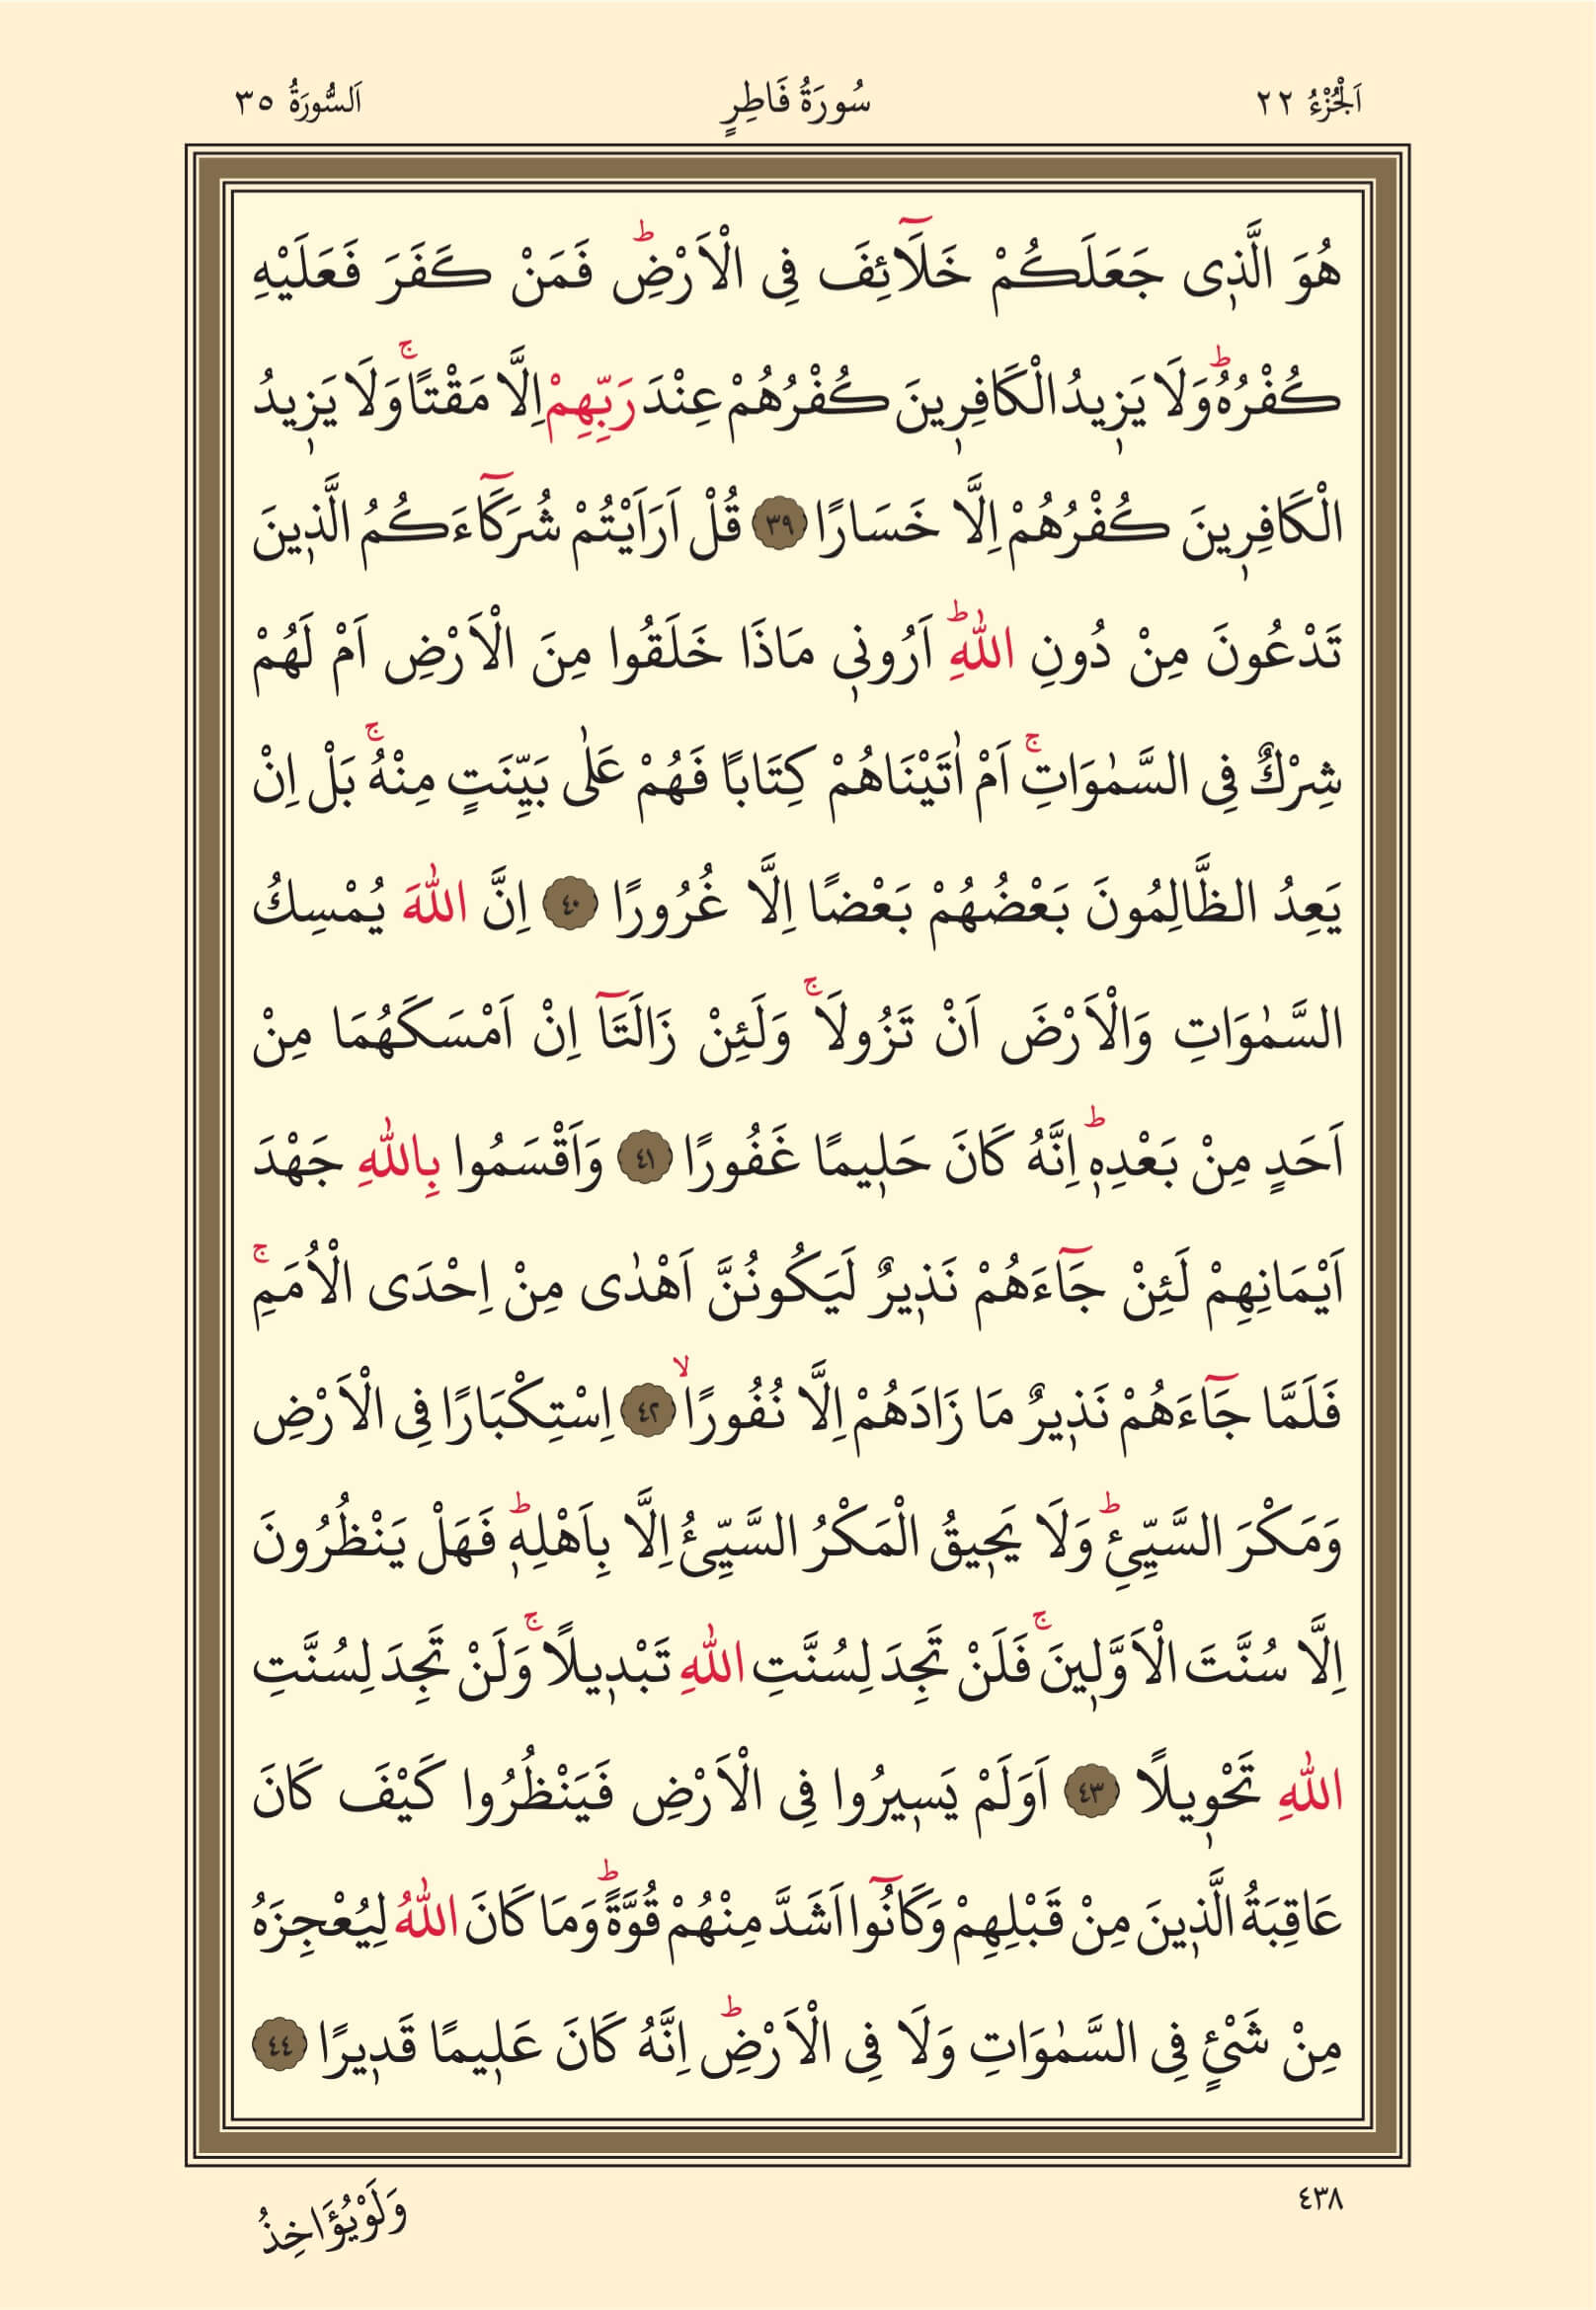 اَلْجُزْءُ ٢٢ سُورَةُ فَاطِرٍ اَلسُّورَةُ ٣٥
هُوَ الَّذ۪ى جَعَلَكُمْ خَلَٓائِفَ فِى الْاَرْضِۜ فَمَنْ كَفَرَ فَعَلَيْهِ
كُفْرُهُۜ وَلَا يَز۪يدُ الْكَافِر۪ينَ كُفْرُهُمْ عِنْدَ رَبِّهِمْ اِلَّا مَقْتًاۚ وَلَا يَز۪يدُ
الْكَافِر۪ينَ كُفْرُهُمْ اِلَّا خَسَارًا ٣٩ قُلْ اَرَاَيْتُمْ شُرَكَٓاءَكُمُ الَّذ۪ينَ
تَدْعُونَ مِنْ دُونِ اللّٰهِۜ اَرُون۪ى مَاذَا خَلَقُوا مِنَ الْاَرْضِ اَمْ لَهُمْ
شِرْكٌ فِى السَّمٰوَاتِۚ اَمْ اٰتَيْنَاهُمْ كِتَابًا فَهُمْ عَلٰى بَيِّنَتٍ مِنْهُۚ بَلْ اِنْ
يَعِدُ الظَّالِمُونَ بَعْضُهُمْ بَعْضًا اِلَّا غُرُورًا ٤٠ اِنَّ اللّٰهَ يُمْسِكُ
السَّمٰوَاتِ وَالْاَرْضَ اَنْ تَزُولَاۚ وَلَئِنْ زَالَتَٓا اِنْ اَمْسَكَهُمَا مِنْ
اَحَدٍ مِنْ بَعْدِه۪ۜ اِنَّهُ كَانَ حَل۪يمًا غَفُورًا ٤١ وَاَقْسَمُوا بِاللّٰهِ جَهْدَ
اَيْمَانِهِمْ لَئِنْ جَٓاءَهُمْ نَذ۪يرٌ لَيَكُونُنَّ اَهْدٰى مِنْ اِحْدَى الْاُمَمِۚ
فَلَمَّا جَٓاءَهُمْ نَذ۪يرٌ مَا زَادَهُمْ اِلَّا نُفُورًاۙ ٤٢ اِسْتِكْبَارًا فِى الْاَرْضِ
وَمَكْرَ السَّيِّئِۜ وَلَا يَح۪يقُ الْمَكْرُ السَّيِّئُ اِلَّا بِاَهْلِه۪ۜ فَهَلْ يَنْظُرُونَ
اِلَّا سُنَّتَ الْاَوَّل۪ينَۚ فَلَنْ تَجِدَ لِسُنَّتِ اللّٰهِ تَبْد۪يلًاۚ وَلَنْ تَجِدَ لِسُنَّتِ
اللّٰهِ تَحْو۪يلًا ٤٣ اَوَلَمْ يَس۪يرُوا فِى الْاَرْضِ فَيَنْظُرُوا كَيْفَ كَانَ
عَاقِبَةُ الَّذ۪ينَ مِنْ قَبْلِهِمْ وَكَانُٓوا اَشَدَّ مِنْهُمْ قُوَّةًۜ وَمَا كَانَ اللّٰهُ لِيُعْجِزَهُ
مِنْ شَىْءٍ فِى السَّمٰوَاتِ وَلَا فِى الْاَرْضِۜ اِنَّهُ كَانَ عَل۪يمًا قَد۪يرًا ٤٤
٤٣٨ وَلَوْيُؤَاخِذُ